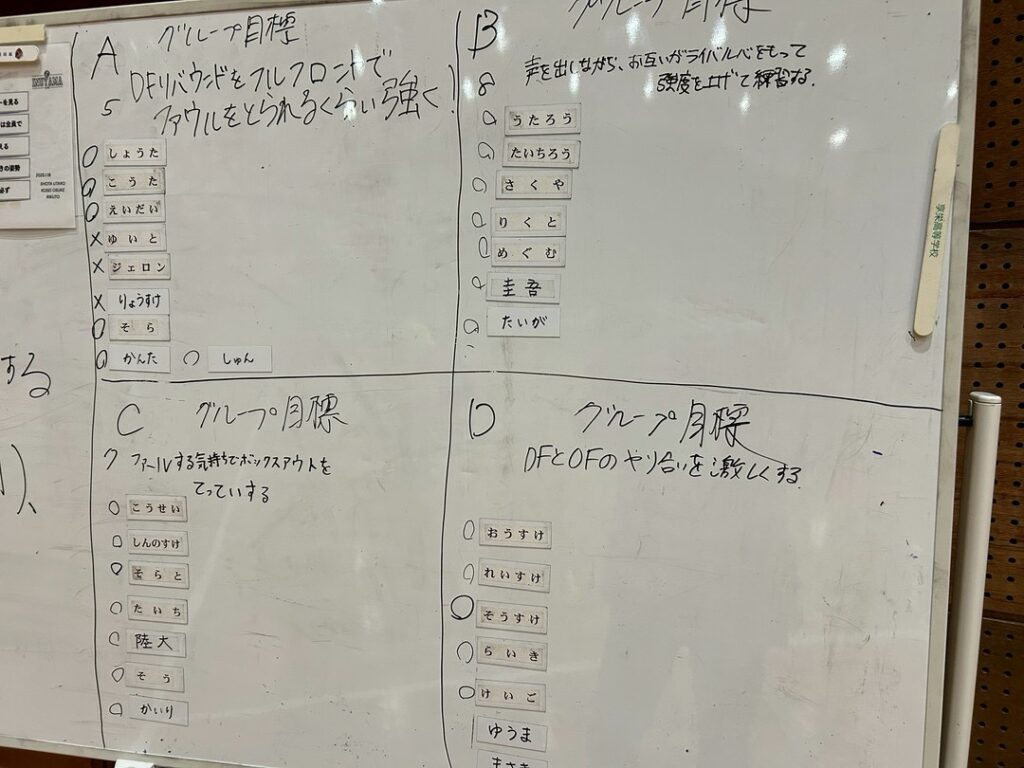 A グループ目標
5 DFリバウンドをフルフロントで
ファウルをとられるくらい強く!
○ しょうた
○ こうた
○ えいだい
× ゆいと
× ジェロン
× りょうすけ
○ そら
○ かんた ○ しゅん
B グループ目標
8 声を出しながら、お互いがライバル心をもって
強度を上げて練習する.
○ うたろう
○ たいちろう
○ さくや
○ りくと
○ めぐむ
○ 圭吾
○ たいが
C グループ目標
7 ファールする気持ちでボックスアウトを
てっていする
○ こうせい
○ しんのすけ
○ そらと
○ たいち
○ 陸大
○ そう
○ かいり
D グループ目標
DFとOFのやり合いを激しくする
○ おうすけ
○ れいすけ
○ そうすけ
○ らいき
○ けいご
ゆうま
まさき
する
享栄高等学校
ーを見る
は全員で
える
きの姿勢
必ず